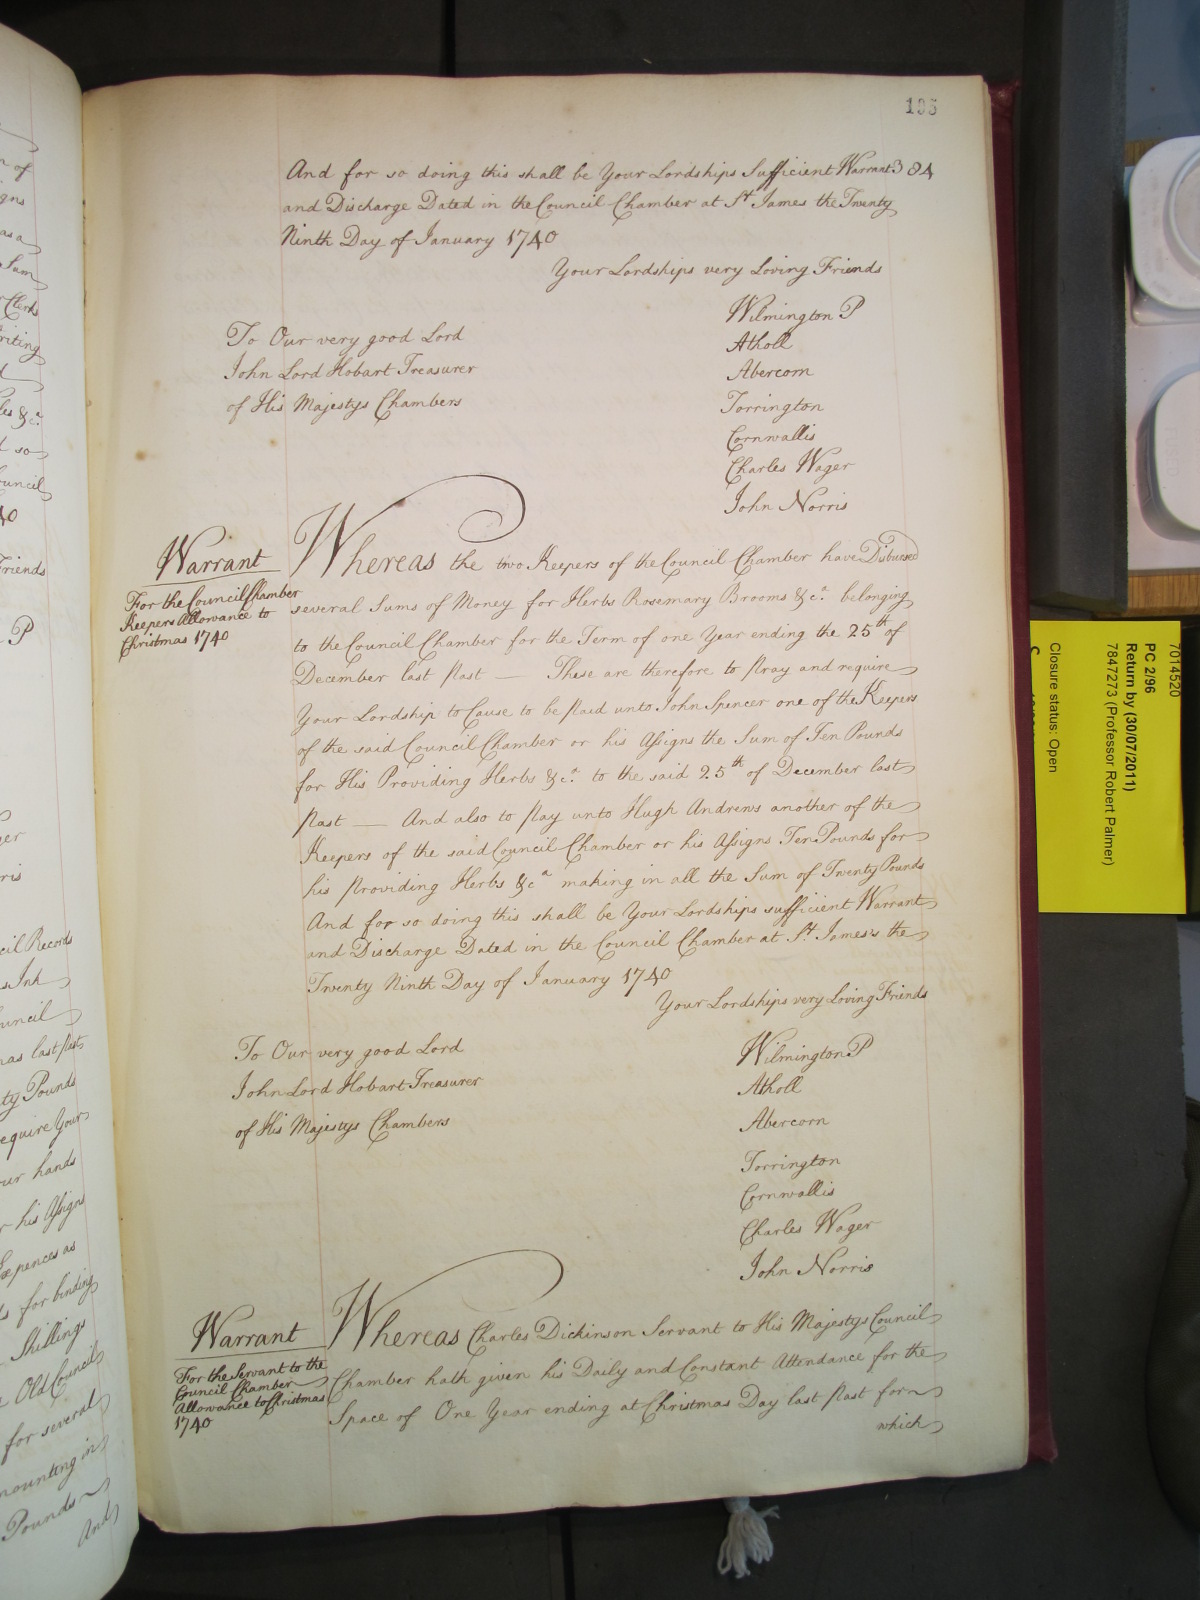 195
And for so doing this shall be Your Lordships Sufficient Warrant 384
and Discharge Dated in the Council Chamber at St James the Twenty
Ninth Day of January 1740
Your Lordships very Loving Friends
To Our very good Lord
John Lord Hobart Treasurer
of His Majestys Chambers
Wilmington P
Atholl
Abercorn
Torrington
Cornwallis
Charles Wager
John Norris
Warrant
For the Council Chamber
Keepers Allowance to
Christmas 1740
Whereas the two Keepers of the Council Chamber have Disbursed
several Sums of Money for Herbs Rosemary Brooms &ca. belonging
to the Council Chamber for the Term of one Year ending the 25th of
December last Past — These are therefore to Pray and require
Your Lordship to Cause to be Paid unto John Spencer one of the Keepers
of the said Council Chamber or his Assigns the Sum of Ten Pounds
for His Providing Herbs &ca. to the said 25th of December last
Past — And also to Pay unto Hugh Andrews another of the
Keepers of the said Council Chamber or his Assigns Ten Pounds for
his Providing Herbs &ca making in all the Sum of Twenty Pounds
And for so doing this shall be Your Lordships sufficient Warrant
and Discharge Dated in the Council Chamber at St James's the
Twenty Ninth Day of January 1740
Your Lordships very Loving Friends
To Our very good Lord
John Lord Hobart Treasurer
of His Majestys Chambers
Wilmington P
Atholl
Abercorn
Torrington
Cornwallis
Charles Wager
John Norris
Warrant
For the Servant to the
Council Chamber
Allowance to Christmas
1740
Whereas Charles Dickinson Servant to His Majestys Council
Chamber hath given his Daily and Constant Attendance for the
Space of One Year ending at Christmas Day last Past for
which
7014520
PC 2/96
Return by (30/07/2011)
7847273 (Professor Robert Palmer)
Closure status: Open